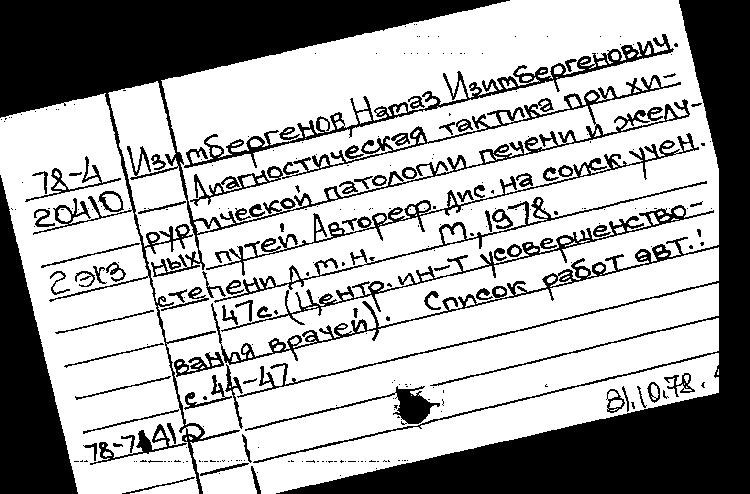 Изтмбергенов, Натаз Изитбергенович.
78-4 Диагностическая тактика при хи-
20410 рургической патологии печени и желу-
2 экз ных путей. Автореф. дис. на соиск. учен.
степени д.т.н. М., 1978.
47с. (Центр. ин-т усовершенство-
вания врачей). Список работ авт.:
с. 44-47.
31.10.78.